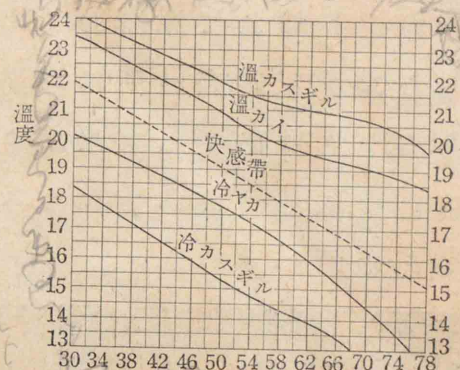 溫度
24
23
22
21
20
19
18
17
16
15
14
13
溫カスギル
溫カイ
快感帶
冷ヤカ
冷カスギル
24
23
22
21
20
19
18
17
16
15
14
13
30 34 38 42 46 50 54 58 62 66 70 74 78